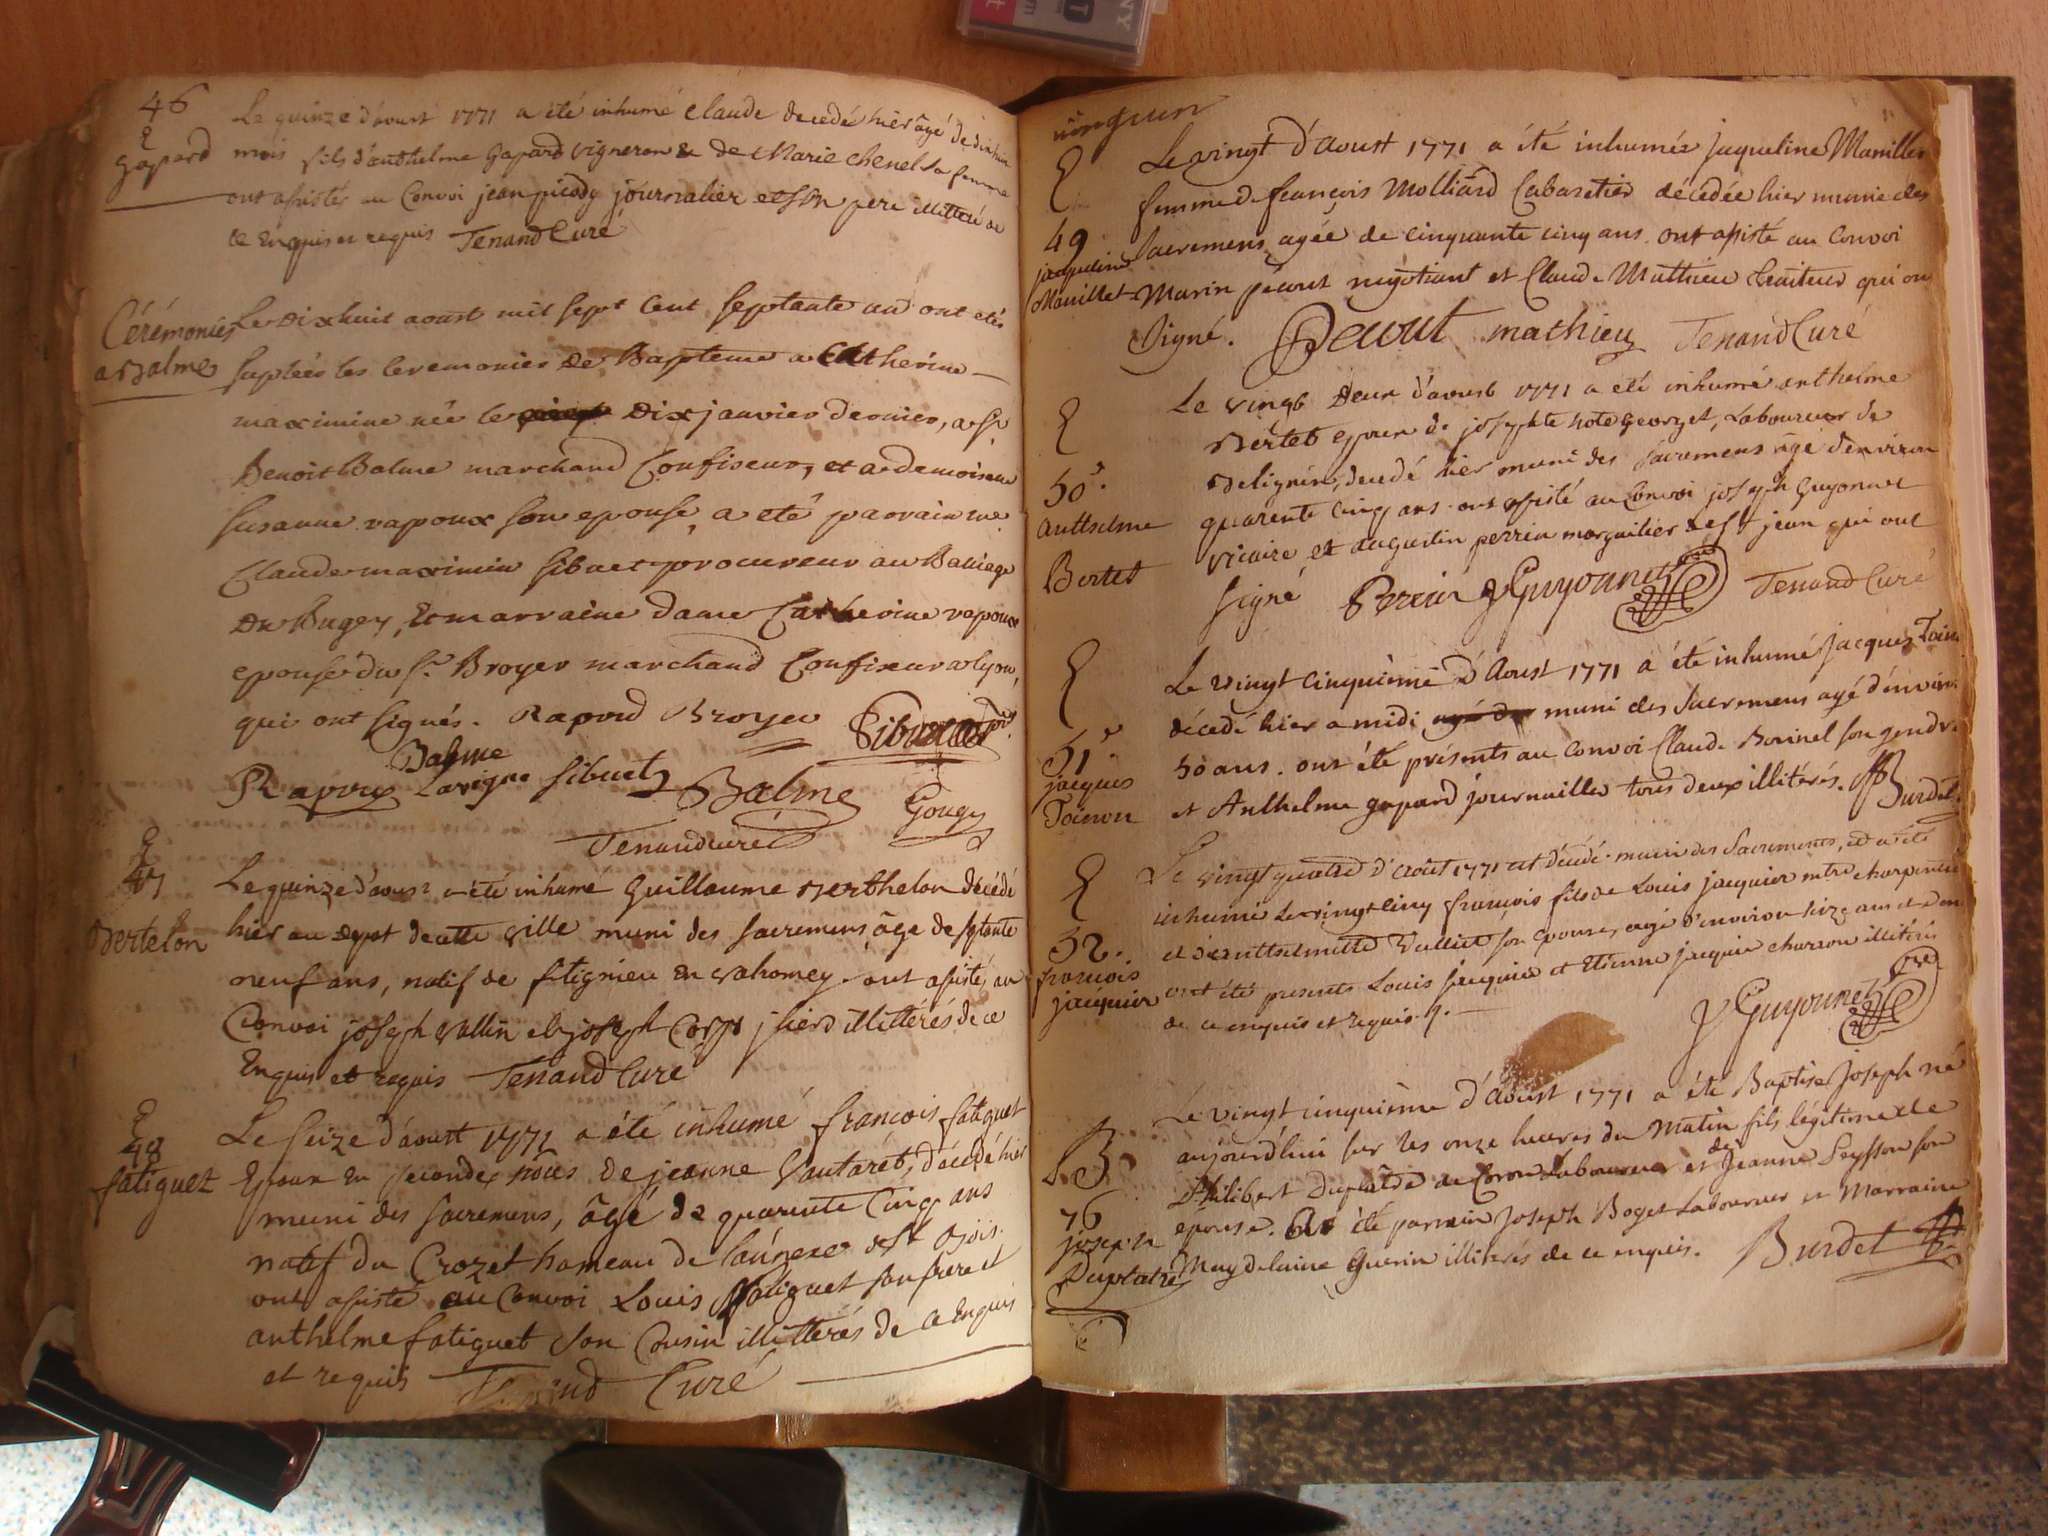 46
E
Gapard
Le quinze d'aoust 1771 a été inhumé Claude decedé hier âgé de dix huit
mois fils d'anthelme Gapard vigneron & de Marie Chenel sa femme
ont assistés au Convoi jean picody journalier et son pere illitteré de
ce Enquis et requis Tenand Curé
Cérémonies
a Balme
Le Dix huit aoust mil sept Cent septante un ont etés
suplées les Ceremonies de Bapteme a Catherine
maximine née le Dix janvier dernier, a sr
Benoit Balme marchand Confiseur, et a demoiselle
susanne rapoux son epouse, a eté parrain me
Claude maximin sibuet procureur au Balliage
Du Bugey, Et marraine dame Catherine rapoux
epouse du sr. Broyer marchand Confiseur a lyon,
qui ont signés. Rapoud Broyer Sibuet
Balme
Rapoux Lavigne sibuet Balme Gougy
Tenand curé
E
47
Bertelon
Le quinze d'aoust a été inhumé Guillaume Berthelon décédé
hier au depot de cette ville muni des sacremens âge de septante
neuf ans, natif de fitignieu En valromey. ont assistés au
Convoi joseph vallin et joseph illittérés de ce
Enquis et requis Tenand Curé
E
48
fatiguet
Le seize d'aoust 1771 a été inhumé francois fatiguet
Epoux En secondes nôces de jeanne Vautaret, décédé hier
muni des sacremens, âgé de quarente Cinq ans
natif du Crozet hameau de
ont assisté au Convoi Louis fatiguet son frere et
anthelme fatiguet son Cousin illittérés de ce Enquis
et requis Tenand Curé
E
49
jaqueline
Manillet
Le vingt d'Aoust 1771 a été inhumée Jaqueline Manillet
femme de françois Molliard Cabaretier décédée hier munie des
Sacremens agée de cinquante cinq ans. ont assisté au Convoi
Marin pécout négotiant et Claude Mathieu traiteur qui ont
Signé. Pecout mathieu Tenand Curé
E
50e.
anthelme
Bertet
Le vingt Deux d'aoust 1771 a été inhumé anthelme
Bertet epoux de josephte hote georget, Laboureur de
Belignin, decedé hier muni des sacremens âge d'environ
quarente cinq ans. ont assisté au Convoi joseph Guyonnet
vicaire et augustin perrin marguilier de st jean qui ont
signé Perrin J Guyonnet Tenand Curé
E
51e.
jacques
Toinon
Le vingt cinquième d'Aoust 1771 a été inhumé Jacques Toinon
décedé hier a midi muni des Sacremens agé d'environ
50 ans. ont été présents au convoi Claude Bovinel son gendre
et Anthelme gapard journaillier tous deux illitérés. Burdet
E
52.
francois
jacquier
Le vingt quatre d'Août 1771 est décedé muni des Sacrements, et a été
inhumé Le vingt cinq francois fils de Louis jacquier mtre charpentier
et d'anthelmette Vulliet son epouse, agé d'environ seize ans et demi
ont été presents Louis jacquier et Etienne jacquier charron illitérés
de ce enquis et requis.
J Guyonnet Vre
B
76
joseph
Duplatre
Le vingt cinquième d'Aoust 1771 a été Baptisé Joseph né
aujourd'hui sur les onze heures du matin fils légitime de
Philibert Duplatre de Coron Laboureur et de Jeanne Peysson son
epouse. Ont été parrein Joseph Boget Laboureur et Marraine
Magdelaine Guerin illitérés de ce enquis. Burdet